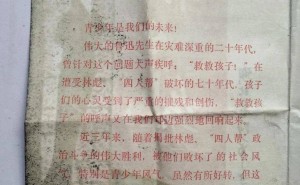 青少年是我们的未来！
伟大的鲁迅先生在灾难深重的二十年代，
曾针对这个问题大声疾呼：“救救孩子！”在
遭受林彪、“四人帮”破坏的七十年代，孩子
们的心灵受到了严重的摧残和创伤，“救救孩
子”的呼声又在我们
强烈地回响起来。
近三年来，随着
批林彪、“四人帮”政
治斗争的伟大胜利，被他们破坏了的社会风
特别是青少年风气，虽然有所好转，但这